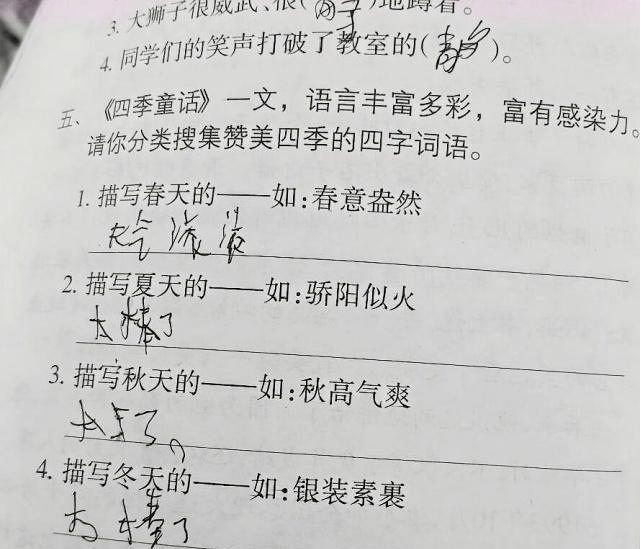 3. 大狮子很威武、很( )地蹲着。
4. 同学们的笑声打破了教室的( )。
五、《四季童话》一文，语言丰富多彩，富有感染力。
请你分类搜集赞美四季的四字词语。
1. 描写春天的——如：春意盎然
2. 描写夏天的——如：骄阳似火
太棒了
3. 描写秋天的——如：秋高气爽
4. 描写冬天的——如：银装素裹
太棒了